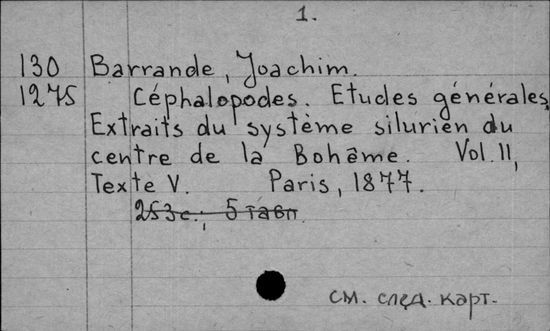 1.
130 Barrande, Joachim.
1275 Céphalopodes. Etudes générales,
Extraits du système silurien du
centre de la Bohême. Vol. II,
Texte V. Paris, 1877.
253 с.; 5 табл
см. след. карт.